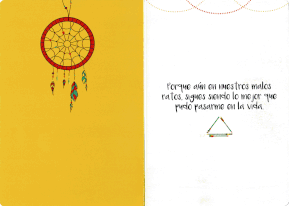 Porque aún en nuestros malos
ratos, sigues siendo lo mejor que
pudo pasarme en la vida.